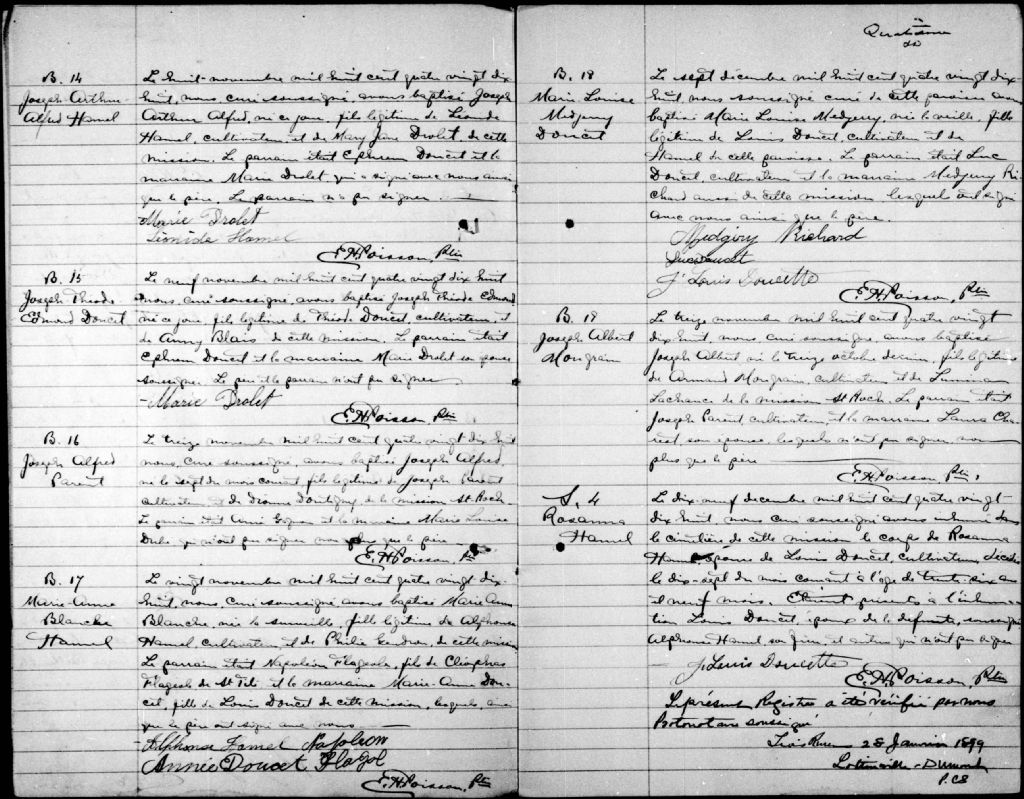 B. 14
Joseph Arthur
Alfred Hamel
Le huit novembre mil huit cent quatre vingt dix
huit, nous, curé soussigné, avons baptisé Joseph
Arthur Alfred, né ce jour, fils légitime de Léonide
Hamel, cultivateur, et de Mary Jane Drolet de cette
mission. Le parrain était Ephrem Doucet et la
marraine Marie Drolet, qui a signé avec nous ainsi
que le père. Le parrain n'a pu signer.
Marie Drolet
Léonide Hamel
E. H. Poisson, Ptre
B. 15
Joseph Théode
Edmond Doucet
Le neuf novembre mil huit cent quatre vingt dix huit
nous, curé soussigné, avons baptisé Joseph Théode Edmond
né ce jour, fils légitime de Théode Doucet, cultivateur, et
de Anny Blais de cette mission. Le parrain était
Ephrem Doucet et la marraine Marie Drolet son épouse
soussignée. Le père et le parrain n'ont pu signer
Marie Drolet
E. H. Poisson Ptre
B. 16
Joseph Alfred
Parent
Le treize novembre mil huit cent quatre vingt dix huit
nous, curé soussigné, avons baptisé Joseph Alfred,
né le sept du mois courant fils légitime de Joseph Parent
cultivateur et de de la mission St Roch.
Le parrain était et la marraine Marie Louise
qui n'ont pu signer non plus que le père
E. H. Poisson Ptre
B. 17
Marie-Anne
Blanche
Hamel
Le vingt novembre mil huit cent quatre vingt dix-
huit, nous, curé soussigné avons baptisé Marie Anne
Blanche, née la surveille, fille légitime de Alphonse
Hamel, cultivateur, et de Philie Gendron, de cette mission
Le parrain était Napoléon Flageole, fils de Cléophas
Flageole de St Tite et la marraine Marie-Anne Dou-
cet, fille de Louis Doucet de cette mission, lesquels, ainsi
que le père ont signé avec nous
Alphonse Hamel Napoleon
Annie Doucet Flagol
E. H. Poisson, Ptre
Quatrième
B. 18
Marie Louise
Medgeury
Doucet
Le sept décembre mil huit cent quatre vingt dix
huit, nous soussigné curé de cette paroisse avons
baptisé Marie Louise Medgeury, née la veille, fille
légitime de Louis Doucet, cultivateur et de
Hamel de cette paroisse. Le parrain était Luc
Doucet, cultivateur et la marraine Medgeury Ri-
chard aussi de cette mission lesquels ont signé
avec nous ainsi que le père.
Medgéory Richard
Luc Doucet
J. Louis Doucette
E. H. Poisson, Ptre
B. 18
Joseph Albert
Mongrain
Le treize novembre mil huit cent quatre vingt
dix huit, nous, curé soussigné, avons baptisé
Joseph Albert né le treize octobre dernier, fils légitime
de Armand Mongrain, cultivateur et de Lumina
Lachance de la mission St Roch. Le parrain était
Joseph Parent cultivateur, et la marraine Laura Cha-
rest son épouse, lesquels n'ont pu signer non
plus que le père
E. H. Poisson, Ptre.
S. 4
Rosanna
Hamel
Le dix-neuf décembre mil huit cent quatre vingt
dix huit, nous curé soussigné avons inhumé dans
le cimetière de cette mission le corps de Rosanna
Hamel épouse de Louis Doucet, cultivateur décédée
le dix-sept du mois courant à l'âge de trente six ans
et neuf mois. Étaient présents à l'inhuma-
tion Louis Doucet, époux de la defunte, soussigné
Alphonse Hamel son frère, et autres qui n'ont pu signer
J. Louis Doucette
E. H. Poisson, Ptre
Le présent Registre a été vérifié par nous
Protonotaire soussigné
Trois Rivières 28 Janvier 1899
Lottinville - Dumont
P. C S